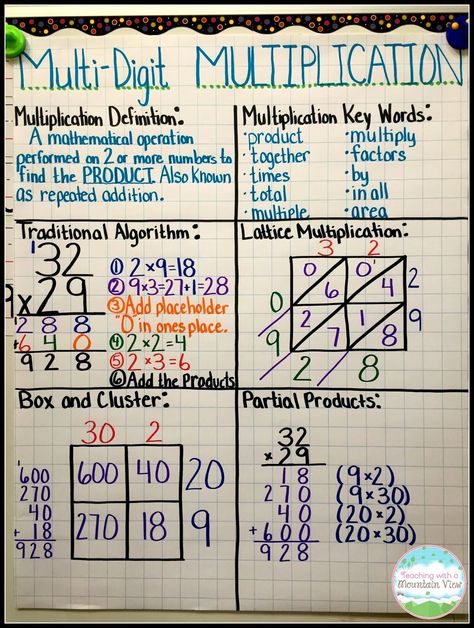 Multi-Digit MULTIPLICATION
Multiplication Definition:
A mathematical operation
performed on 2 or more numbers to
find the PRODUCT. Also known
as repeated addition.
Multiplication Key Words:
·product ·multiply
·together ·factors
·times ·by
·total ·in all
·multiple ·area
Traditional Algorithm:
1
32
×29
1
288
+640
928
① 2×9=18
② 9×3=27+1=28
③ Add placeholder
"0" in ones place.
④ 2×2=4
⑤ 2×3=6
⑥ Add the Products
Lattice Multiplication:
3 2
0 6 0 4 2
2 7 1 8 9
0 9
2 8
Box and Cluster:
30 2
600 40 20
270 18 9
1
600
270
40
+ 18
928
Partial Products:
32
×29
18 (9×2)
270 (9×30)
40 (20×2)
+600 (20×30)
928
Teaching with a
Mountain View